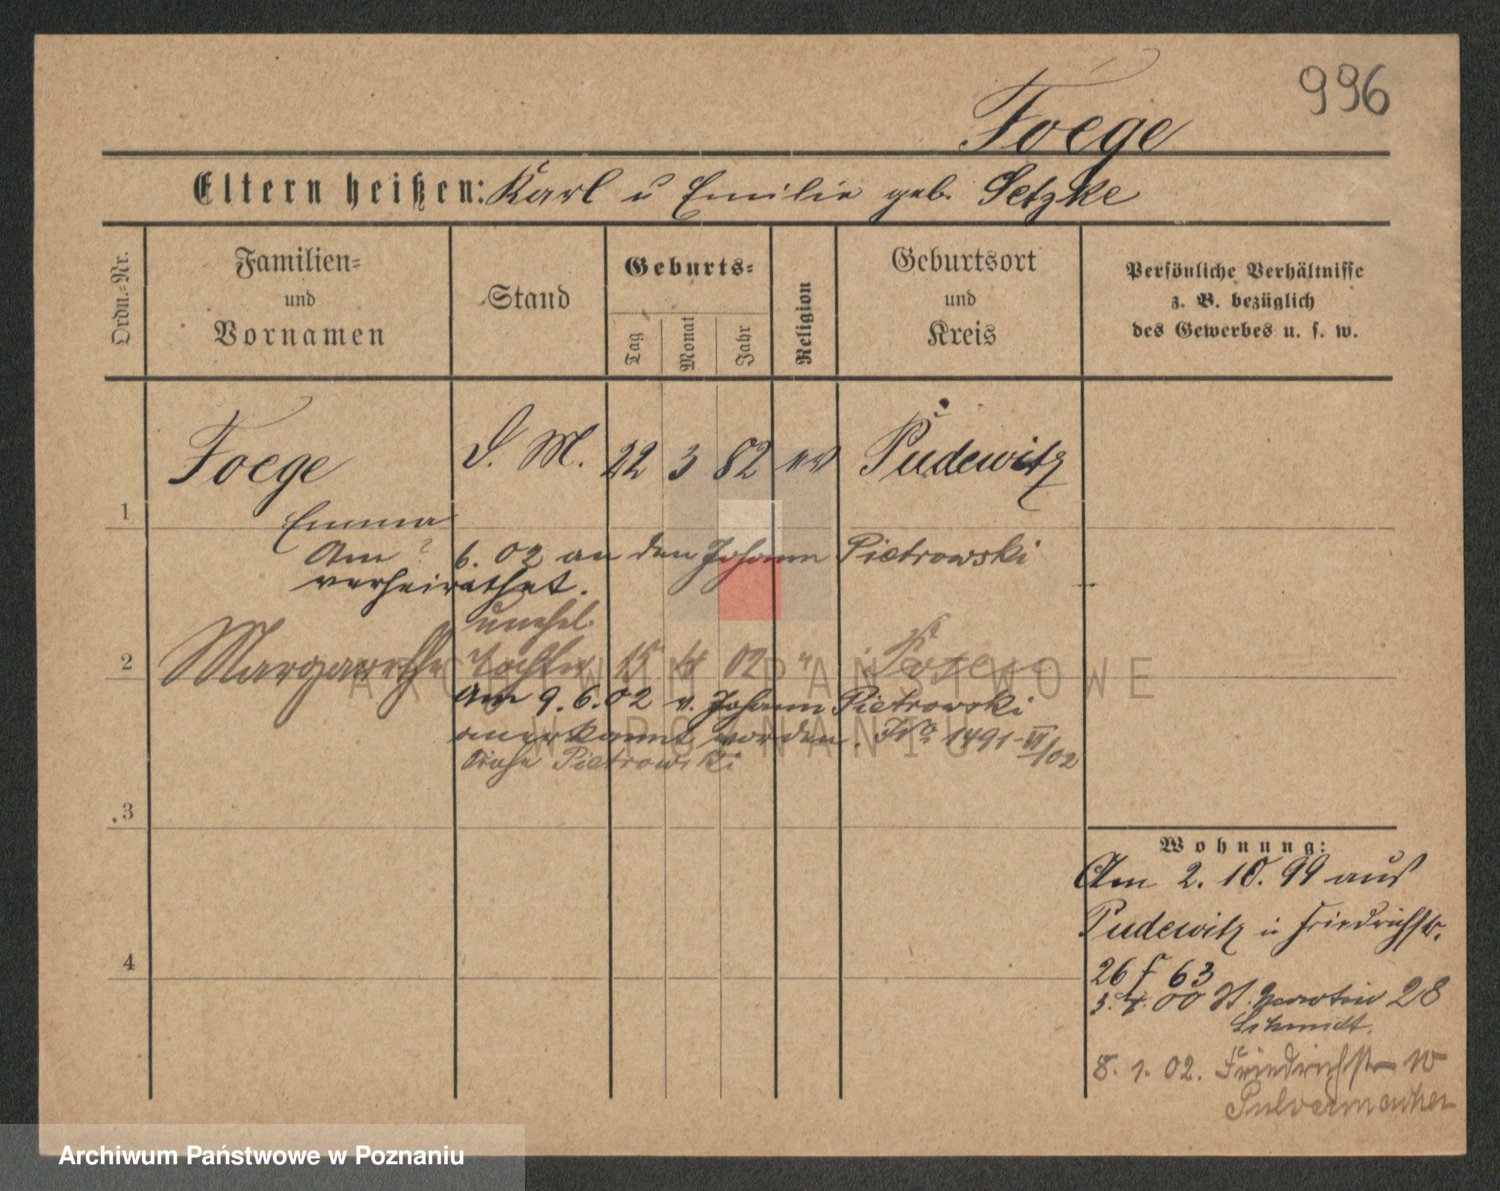 996
Foege
Eltern heißen: Karl u Emilie geb. Setzke
Ordn.-Nr.
Familien-
und
Vornamen
Stand
Geburts-
Tag
Monat
Jahr
Religion
Geburtsort
und
Kreis
Persönliche Verhältnisse
z. B. bezüglich
des Gewerbes u. s. w.
Foege D. M. 22 3 82 ev Pudewitz
1
Emma
Am ? 6. 02 an den Johann Pietrowski
verheirathet.
unehel.
2 Margarethe Tochter 15 4 02 " Posen
Am 9. 6. 02 v. Johann Pietrowski
anerkannt worden. No 1491 VI/02
Siehe Pietrowski
3
4
Wohnung:
Am 2. 10. 99 aus
Pudewitz in Friedrichstr.
26 f 63
3. 4. 00 St. Martin 28
Schmidt.
8. 1. 02. Friedrichstr 10
Pulvermacher
ARCHIWUM PAŃSTWOWE
W POZNANIU
Archiwum Państwowe w Poznaniu